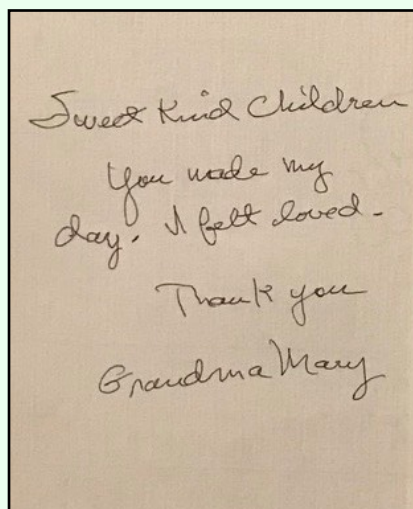 Sweet Kind Children
You made my
day. I felt loved.
Thank you
Grandma Mary